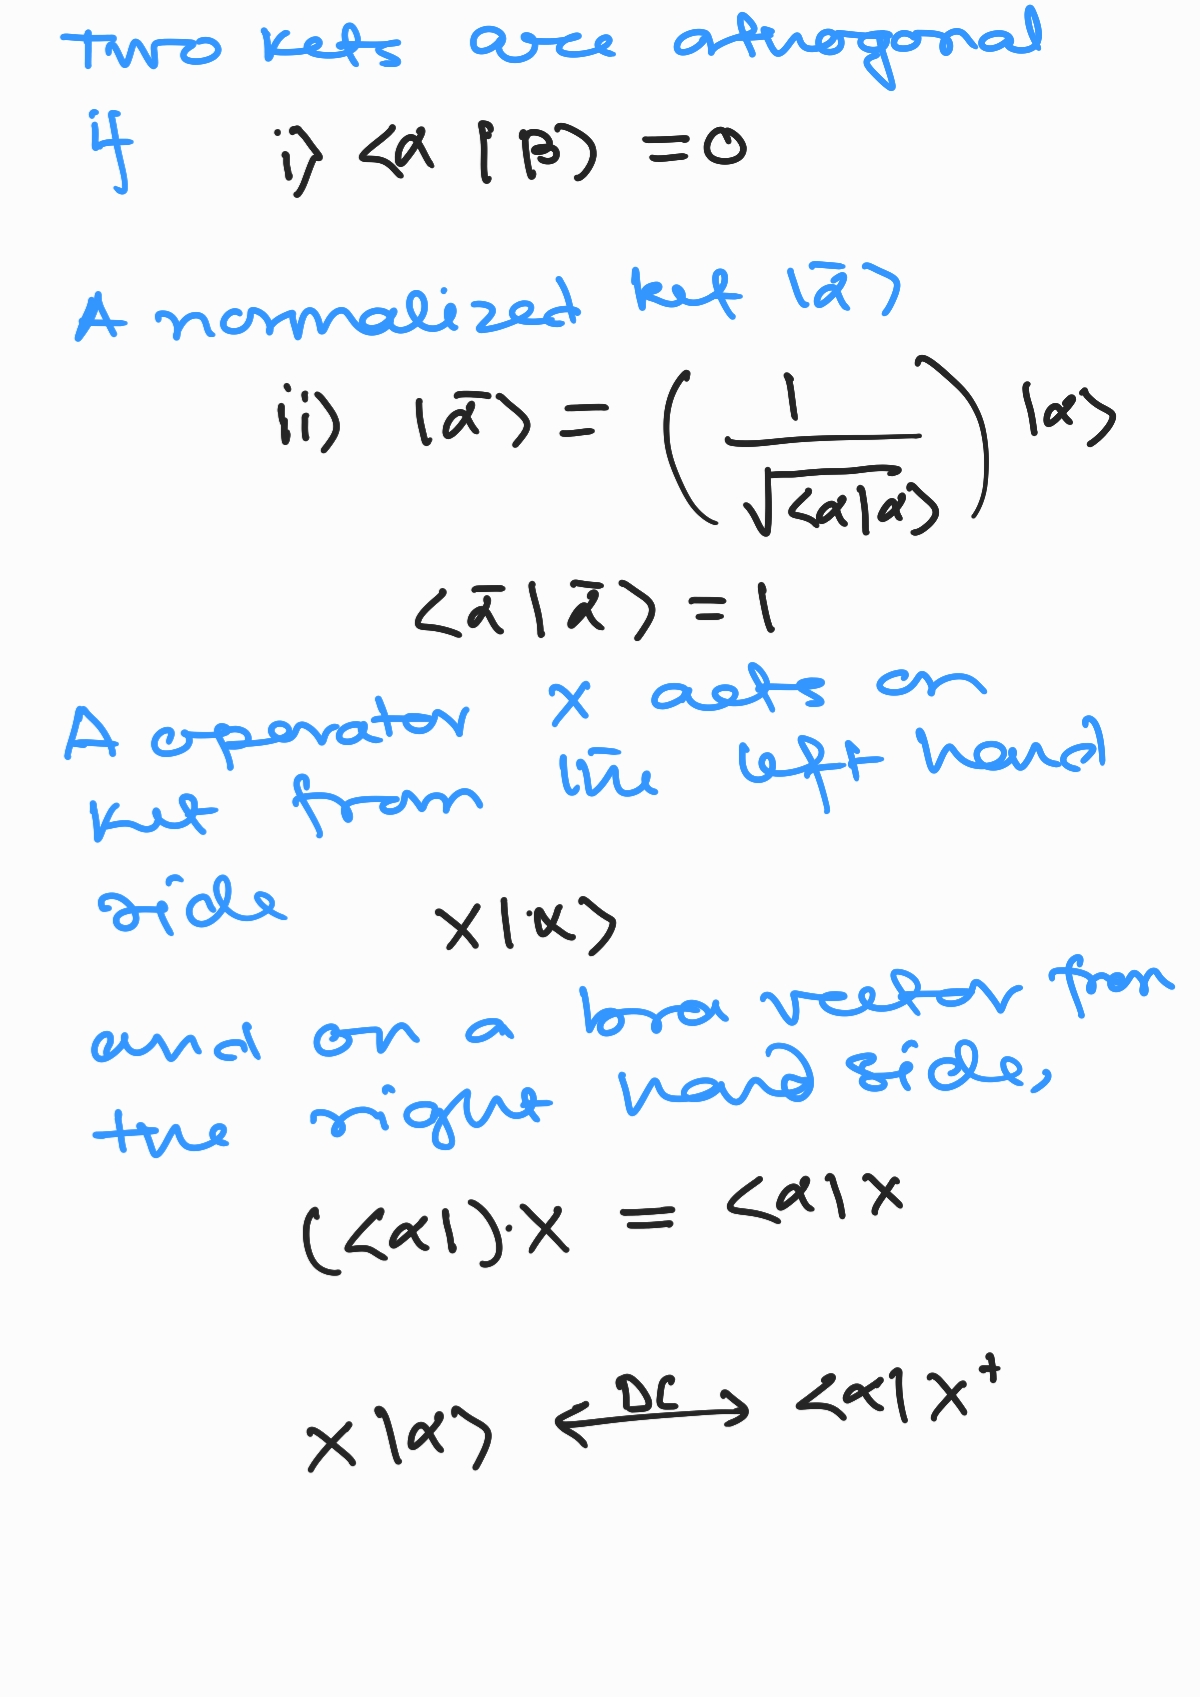 two kets are orthogonal
if i) <α|β> = 0
A normalized ket |ᾱ>
ii) |ᾱ> = (1/√<α|α>) |α>
<ᾱ|ᾱ> = 1
A operator X acts on
ket from the left hand
side X|α>
and on a bra vector from
the right hand side,
(<α|)·X = <α|X
X|α> <-DC-> <α|X†